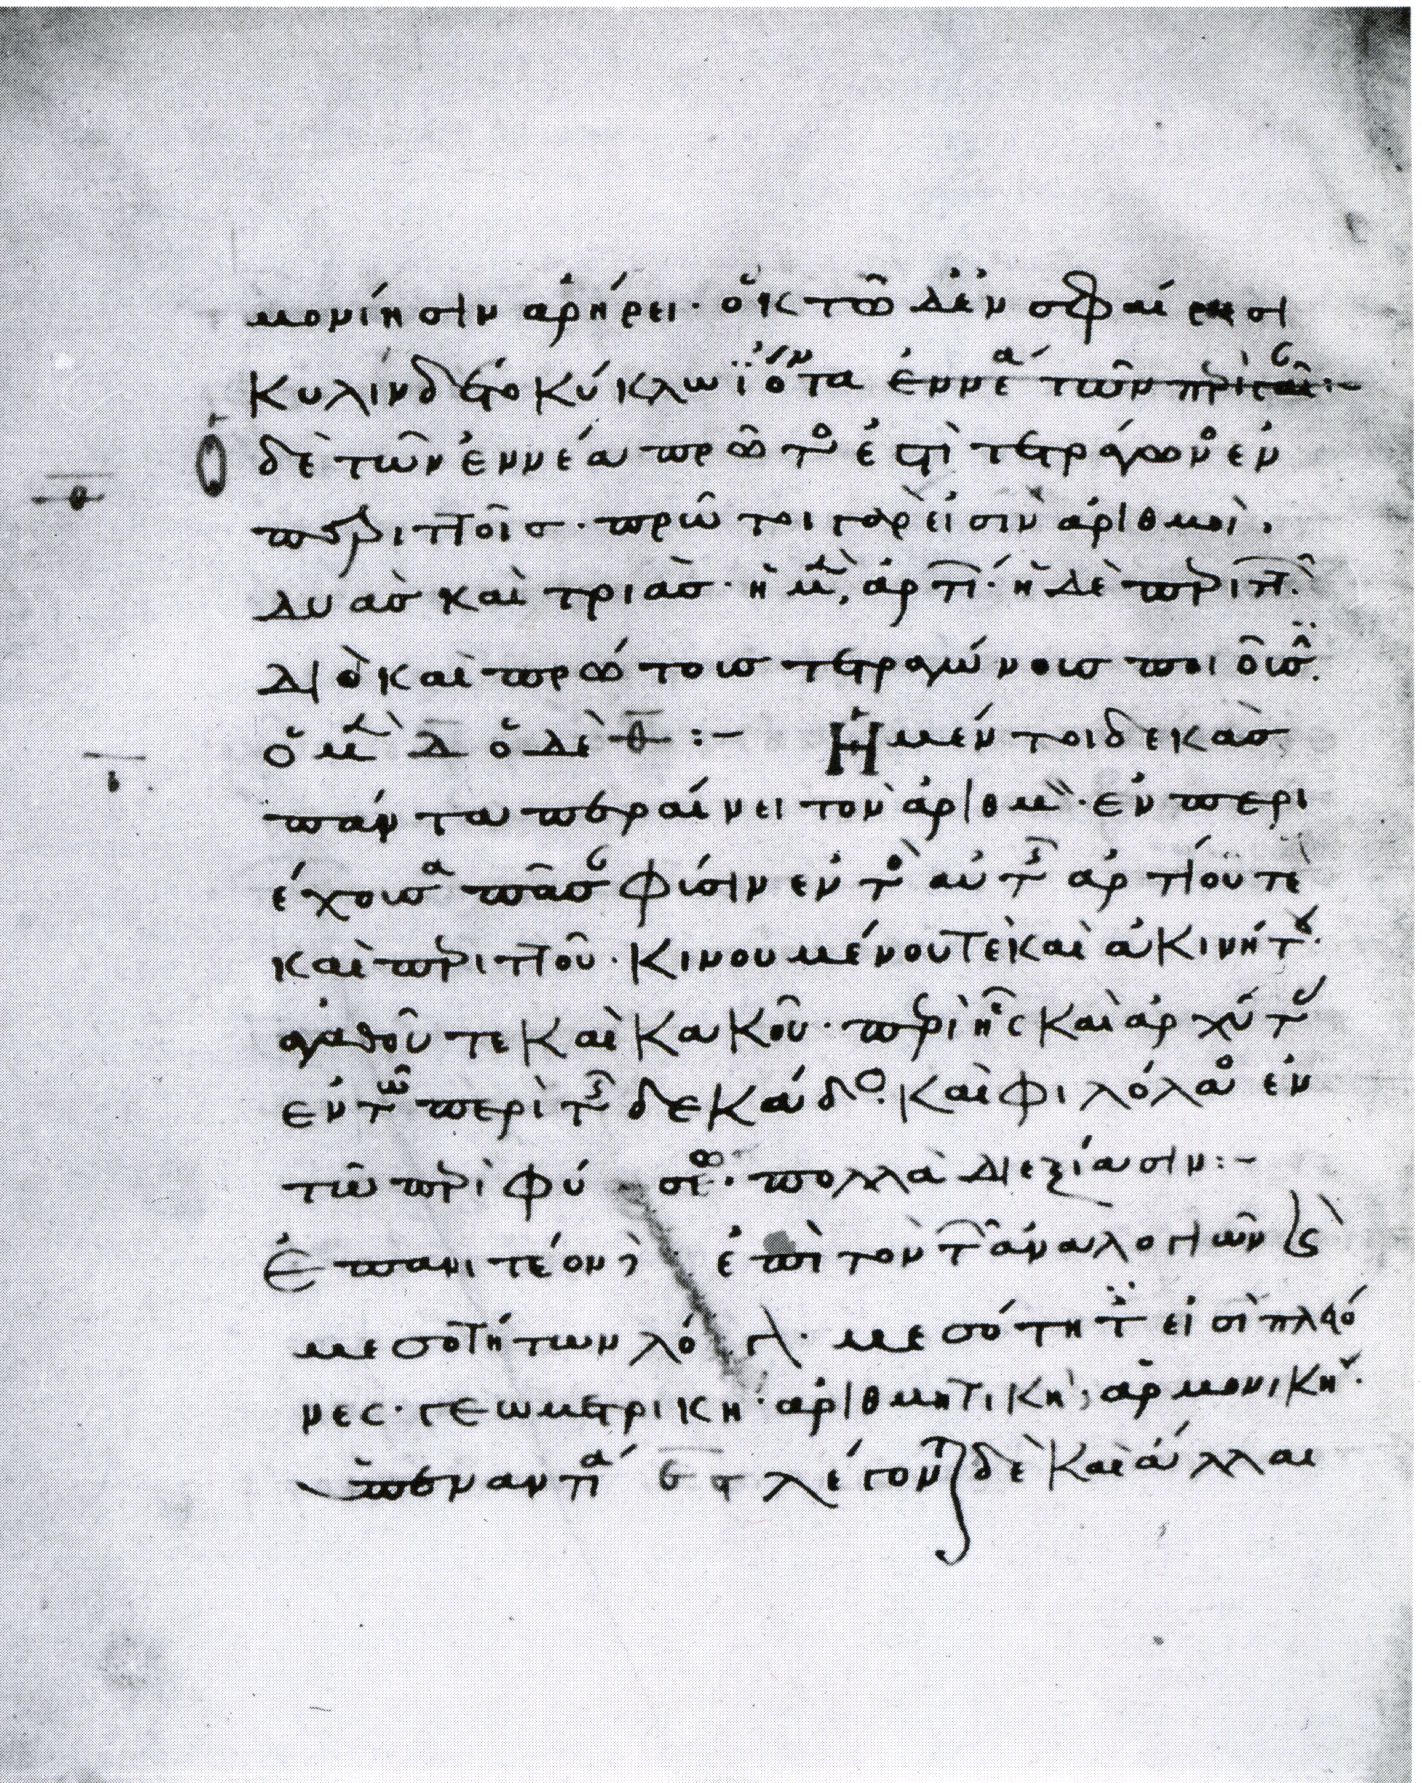 μονίησιν ἀρήρει· ὀκτὼ δὲ ἐν σφαίρησι
κυλίνδετο κύκλωι ἰόντα ἐννέα τῶν περὶ γαῖαν:-
Ὁ δὲ τῶν ἐννέα πρῶτός ἐστι τετράγωνος ἐν
θ
περιττοῖς· πρῶτοι γὰρ εἰσὶν ἀριθμοὶ,
δυὰς καὶ τριὰς· ἡ μὲν, ἀρτί· ἡ δὲ περιττ.
διὸ καὶ πρώτοις τετραγώνοις ποιοῦσι.
ὁ μὲν δ ὁ δὲ θ :- Ἡ μέντοι δεκὰς
ι
πάντα περαίνει τὸν ἀριθμὸν· ἐνπερι
έχουσα πᾶσαν φύσιν ἐντὸς αὐτῆς ἀρτίου τὲ
καὶ περιττοῦ· κινουμένου τὲ καὶ ἀκινήτου·
ἀγαθοῦ τε καὶ κακοῦ· περὶ ἧς καὶ ἀρχύτας
ἐν τῶ περὶ τῆς δεκάδος· καὶ φιλόλαος ἐν
τῶ περὶ φύσεως· πολλὰ διεξίασιν:-
Ἐπανιτέον δὲ ἐπὶ τὸν τῶν ἀναλογιῶν καὶ
μεσοτήτων λόγον· μεσότητές εἰσὶ πλείο
νες· γεωμετρικη· ἀριθμητικὴ, ἁρμονικὴ·
ὑπεναντία ε ϛ λέγονται δὲ καὶ ἄλλαι